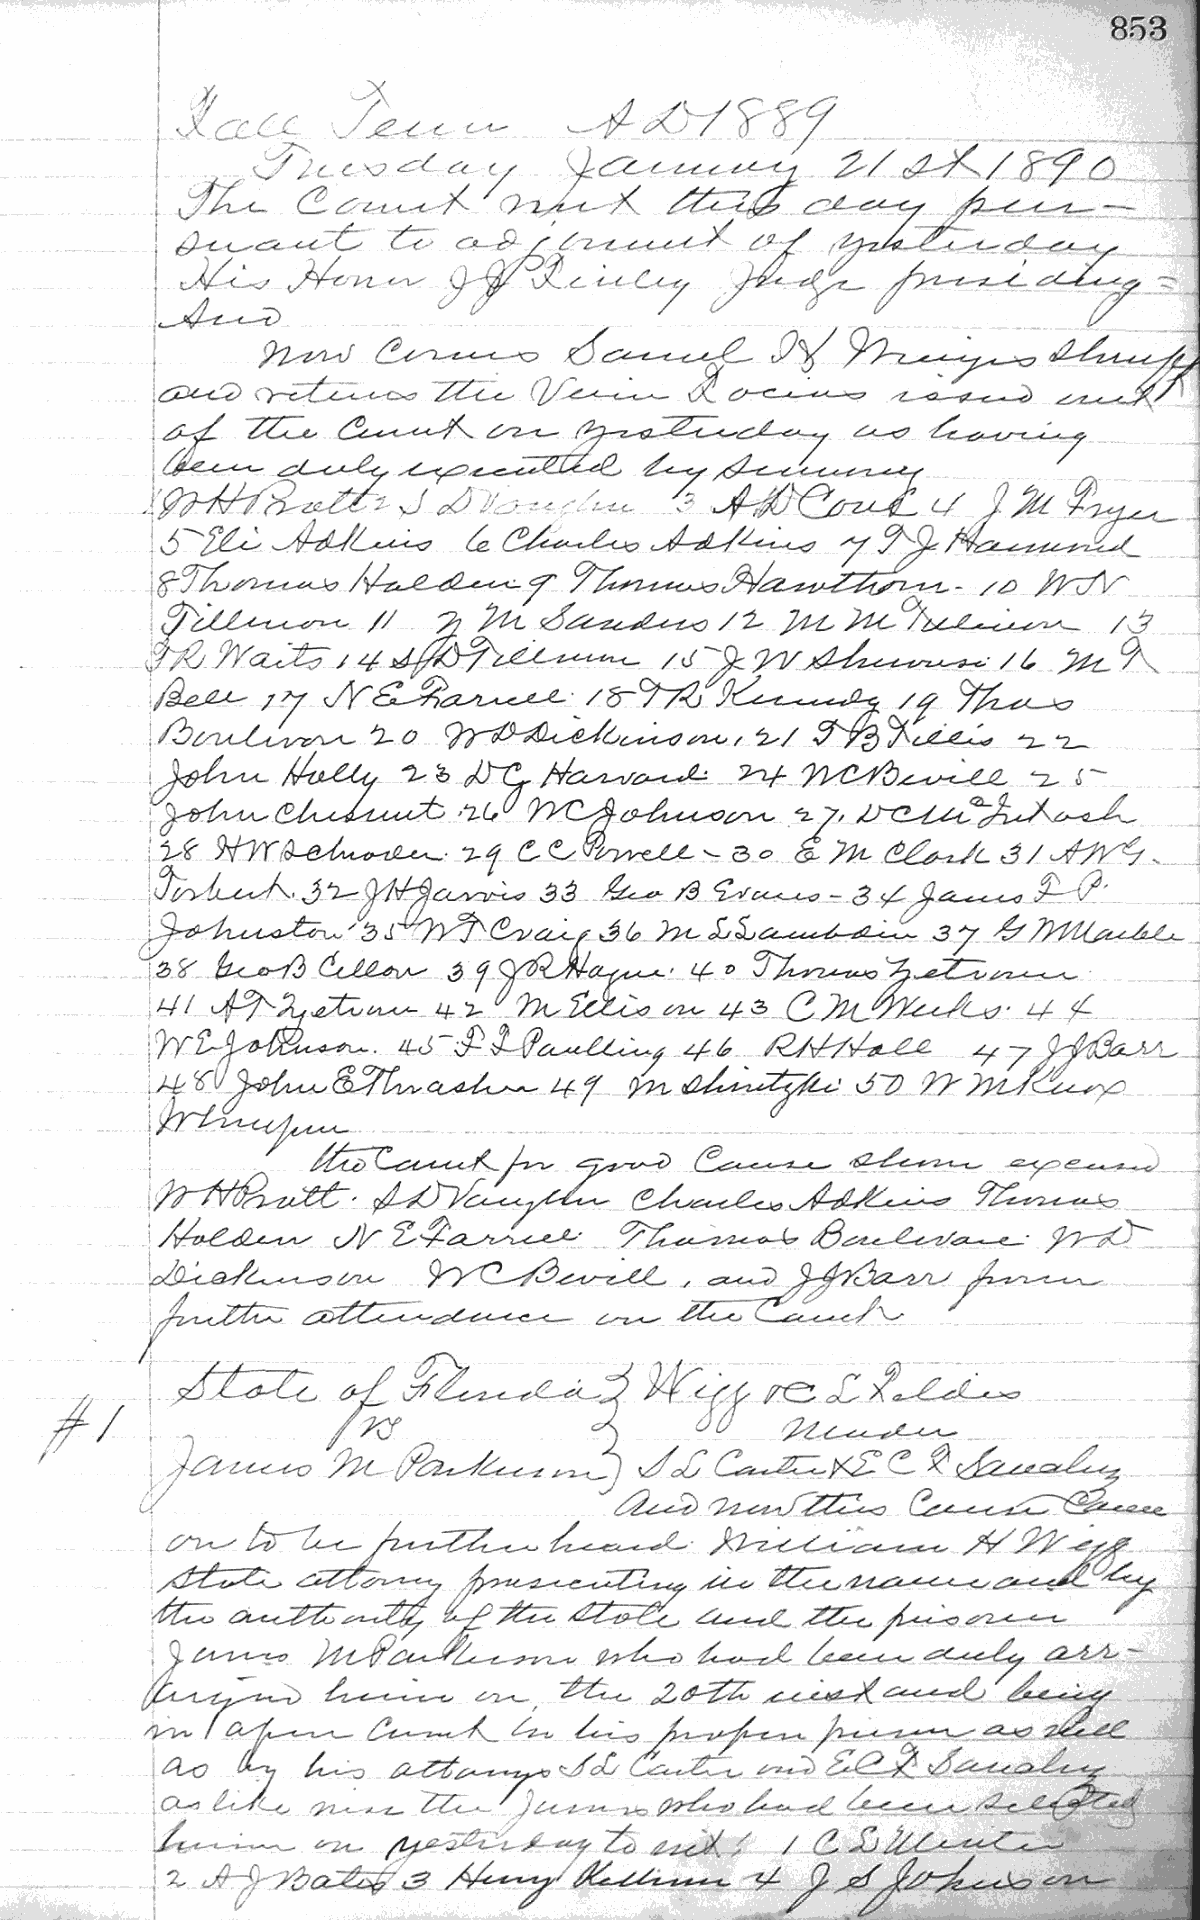 853
Fall Term A D 1889
Tuesday January 21st 1890
The Court met this day pur-
suant to adjornment of yesterday
His Honor J J Finley Judge presiding =
And
Now Comes Samuel H Wienges Sheriff
and returns the Venire Facias issued out
of the Court on yesterday as having
been duly executed by summong
W H Pratt 2 S D Vaughn 3 A D Cone 4 J M Fryer
5 Eli Adkins 6 Charles Adkins 7 T J Hammond
8 Thomas Holden 9 Thomas Hawthorn - 10 W N
Tillman 11 Z M Sanders 12 M M Tillman 13
T R Waits 14 S D Tillman 15 J W Shewrise 16 M T
Bell 17 N E Farrell 18 T R Kennedy 19 Thos
Boulware 20 W D Dickinson, 21 T B Tillis 22
John Holly 23 D G Harvard 24 W C Bevill 25
John Chesnut 26 W C Johnson 27, D C McIntosh
28 H W Schroder 29 C C Powell - 30 E M Clark 31 A W G.
Torbert. 32 J H Jarvis 33 Geo B Evans - 34 James F P.
Johnston 35 W F Craig 36 M L Lambdin 37 G M Markle
38 Geo B Cellon 39 J R Hague. 40 Thomas Zetrouer
41 A T Zetrouer 42 M Ellis on 43 C M Weeks. 44
W E Johnson. 45 F F Paulling 46 R H Hall 47 J J Barr
48 John E Thrasher 49 M Shintzki 50 W M Knox
Whereupon
the Court for good Cause shown excused
W H Pratt. S D Vaughn Charles Adkins Thomas
Holden N E Farrell Thomas Boulware W D
Dickinson W C Bevill, and J J Barr from
further attendance on the Court
State of Florida } Wigg & C L Fildes
#1 vs } Murder
James M Parkinson } S L Carter & E C F Sanchez
And now this Cause Came
on to be further heard. William H Wigg
State attorney prosecuting in the name and by
the authority of the State and the prisoner
James M Parkinson who had been duly arr-
aigned herein on the 20th inst and being
in open Court in his proper person as well
as by his attornys S L Carter and E C F Sanchez
as like wise the Jurors who had been selected
herein on yesterday to wit: 1 C L
2 A J Bates 3 Henry Kellum 4 J S Johnson